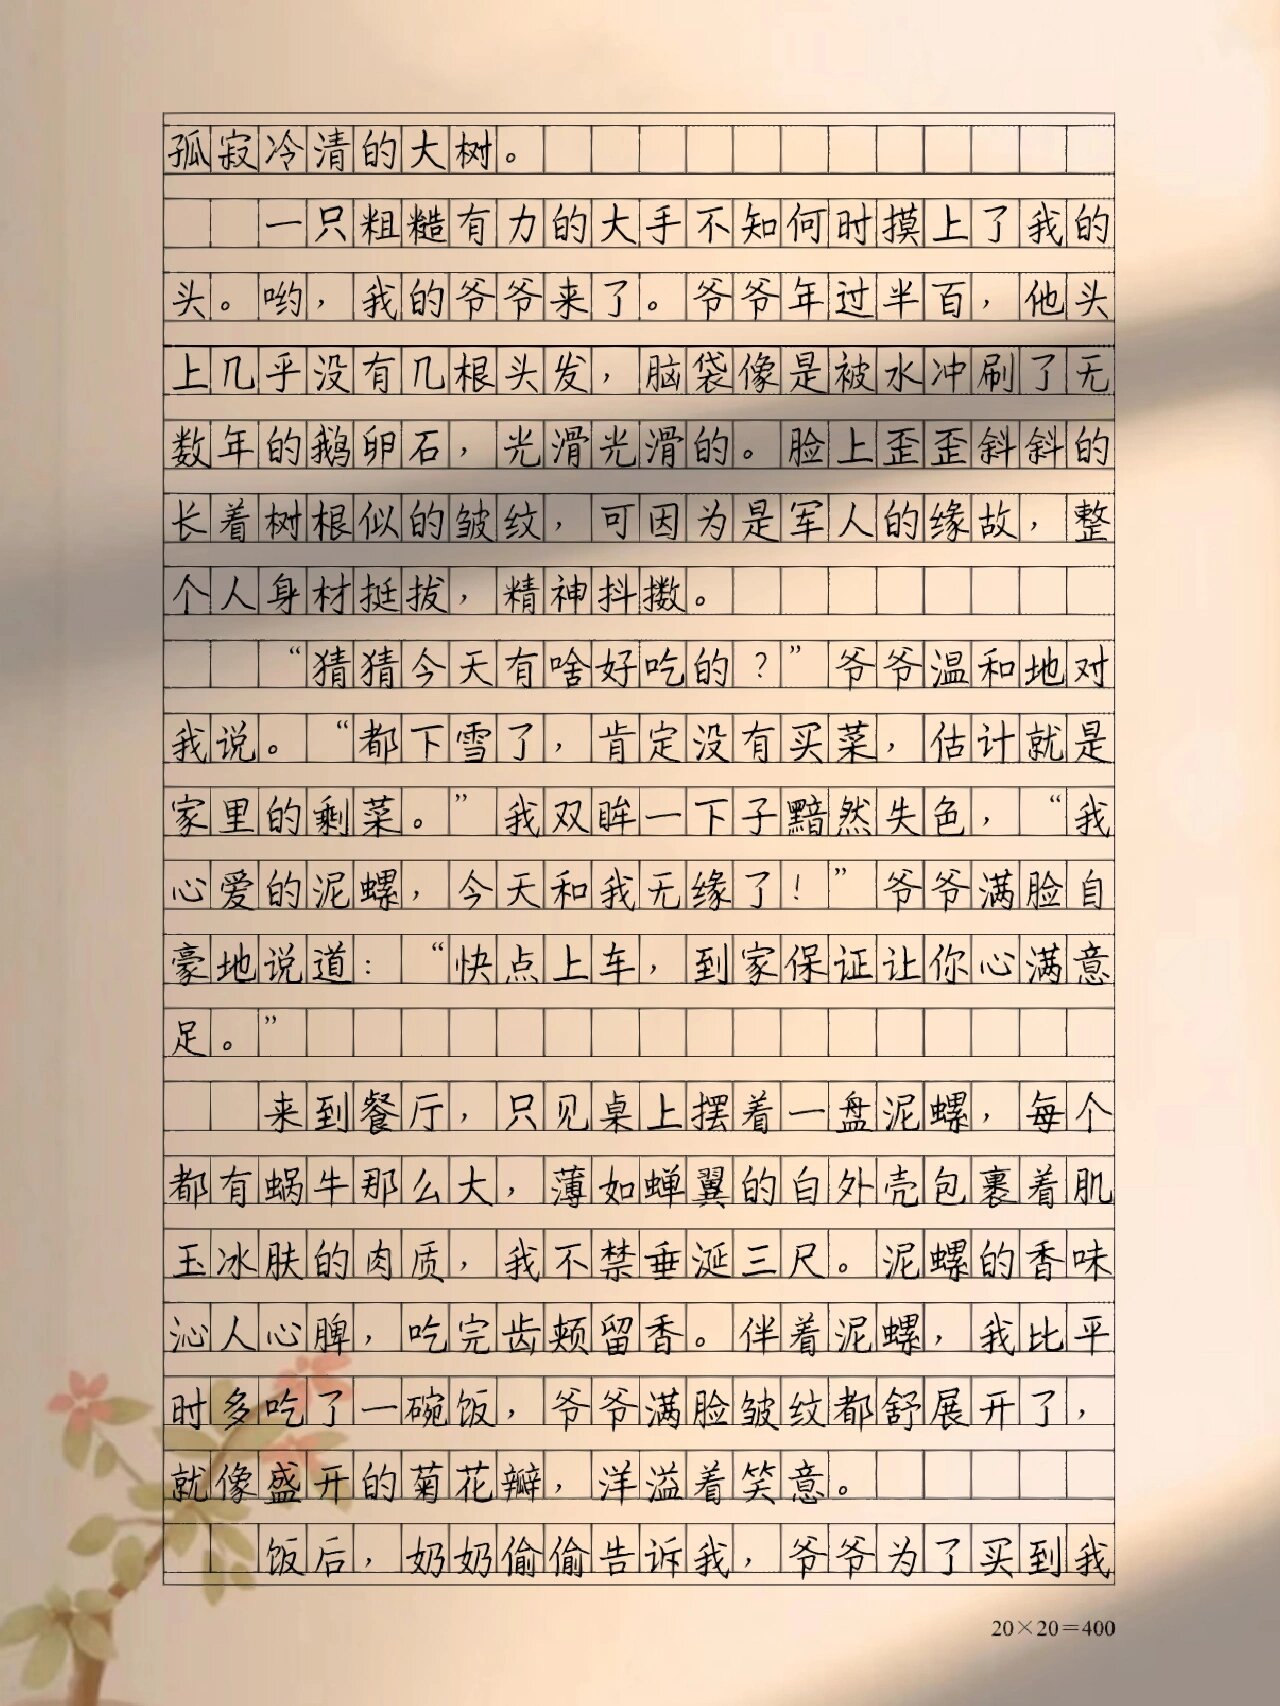 孤寂冷清的大树。
一只粗糙有力的大手不知何时摸上了我的
头。哟，我的爷爷来了。爷爷年过半百，他头
上几乎没有几根头发，脑袋像是被水冲刷了无
数年的鹅卵石，光滑光滑的。脸上歪歪斜斜的
长着树根似的皱纹，可因为是军人的缘故，整
个人身材挺拔，精神抖擞。
“猜猜今天有啥好吃的？”爷爷温和地对
我说。“都下雪了，肯定没有买菜，估计就是
家里的剩菜。”我双眸一下子黯然失色，“我
心爱的泥螺，今天和我无缘了！”爷爷满脸自
豪地说道：“快点上车，到家保证让你心满意
足。”
来到餐厅，只见桌上摆着一盘泥螺，每个
都有蜗牛那么大，薄如蝉翼的白外壳包裹着肌
玉冰肤的肉质，我不禁垂涎三尺。泥螺的香味
沁人心脾，吃完齿颊留香。伴着泥螺，我比平
时多吃了一碗饭，爷爷满脸皱纹都舒展开了，
就像盛开的菊花瓣，洋溢着笑意。
饭后，奶奶偷偷告诉我，爷爷为了买到我
20×20＝400